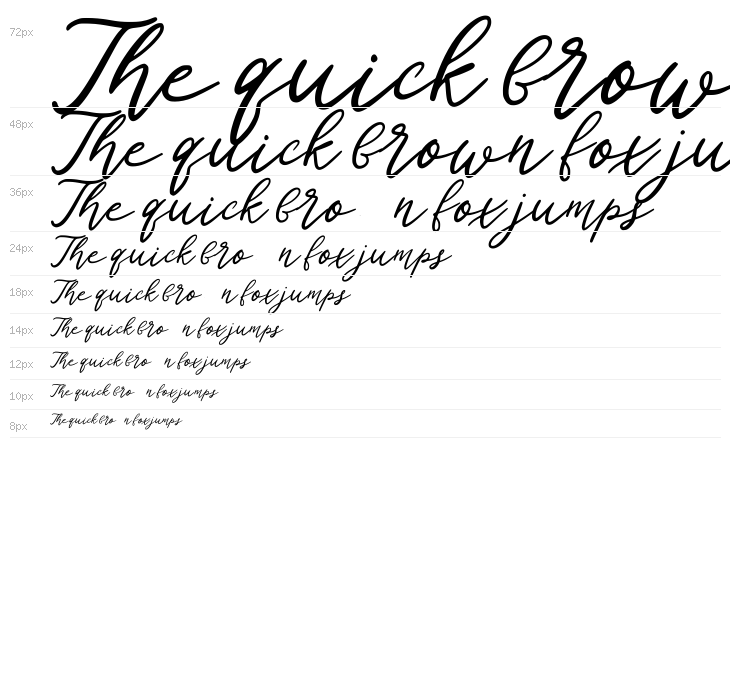 72px The quick brow
48px The quick brown fox ju
36px The quick bro n fox jumps
24px The quick bro n fox jumps
18px The quick bro n fox jumps
14px The quick bro n fox jumps
12px The quick bro n fox jumps
10px The quick bro n fox jumps
8px The quick bro n fox jumps